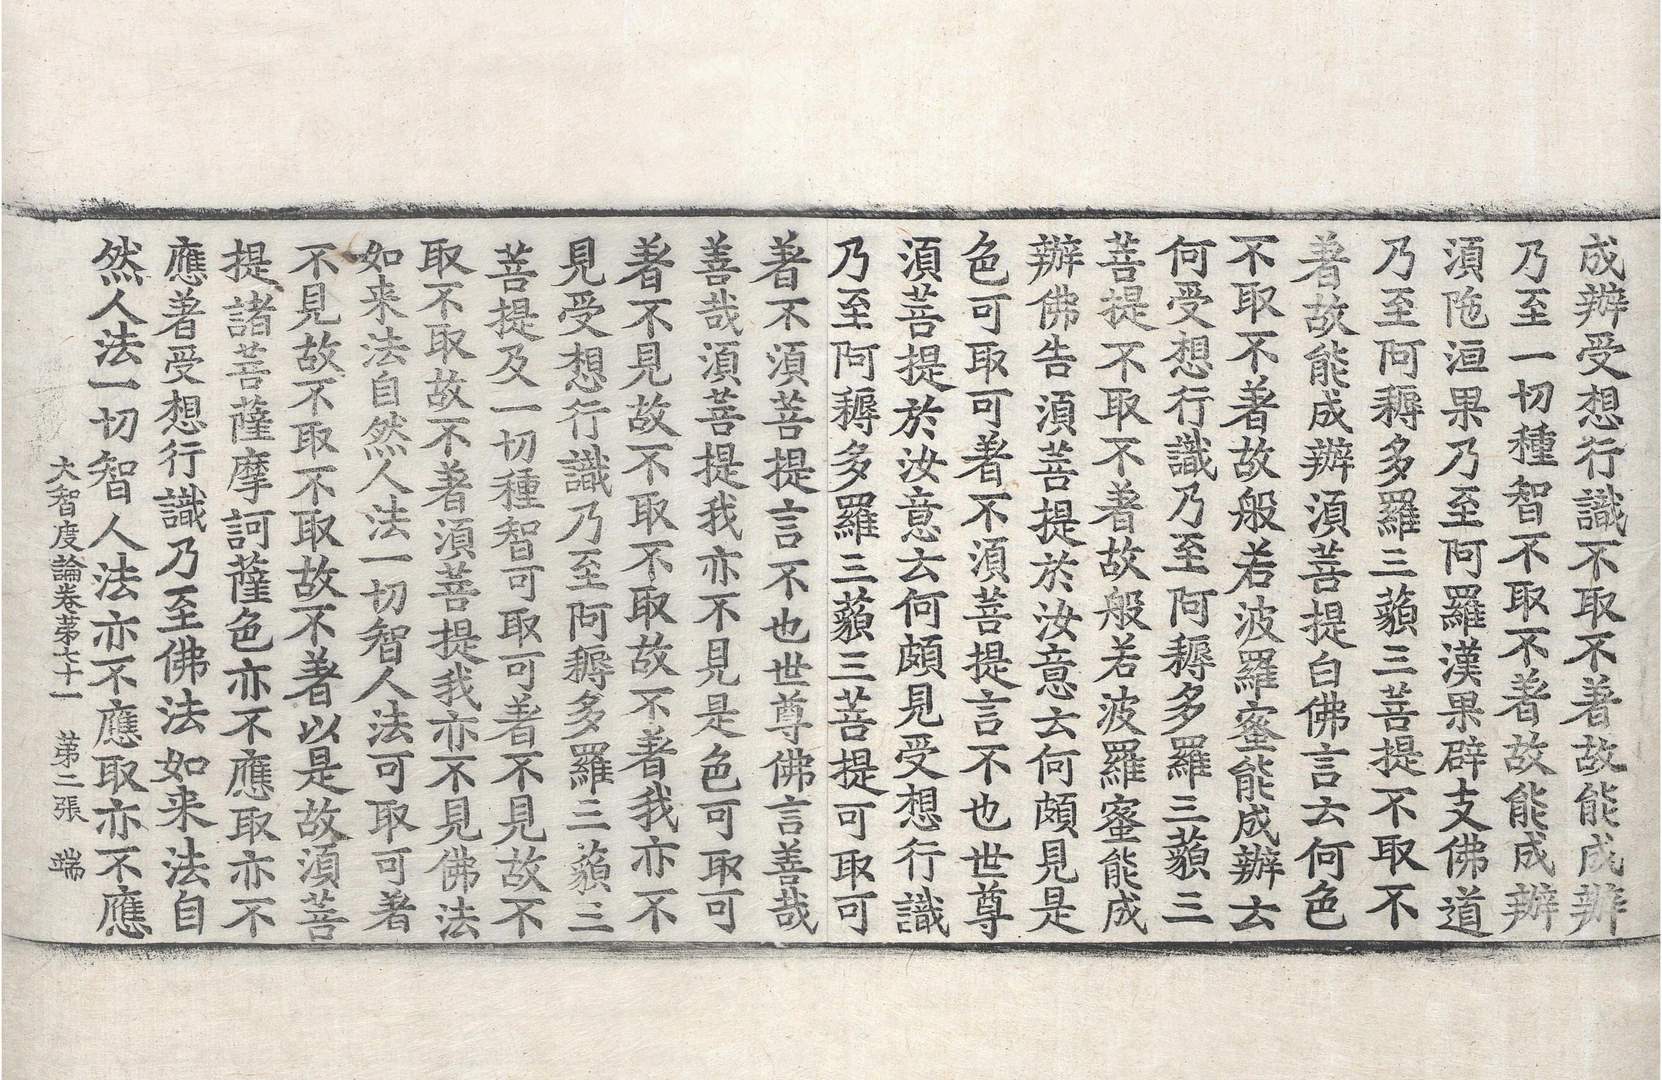 成辦受想行識不取不著故能成辦
乃至一切種智不取不著故能成辦
須陁洹果乃至阿羅漢果辟支佛道
乃至阿耨多羅三藐三菩提不取不
著故能成辦須菩提白佛言云何色
不取不著故般若波羅蜜能成辦云
何受想行識乃至阿耨多羅三藐三
菩提不取不著故般若波羅蜜能成
辦佛告須菩提於汝意云何頗見是
色可取可著不須菩提言不也世尊
須菩提於汝意云何頗見受想行識
乃至阿耨多羅三藐三菩提可取可
著不須菩提言不也世尊佛言善哉
善哉須菩提我亦不見是色可取可
著不見故不取不取故不著我亦不
見受想行識乃至阿耨多羅三藐三
菩提及一切種智可取可著不見故不
取不取故不著須菩提我亦不見佛法
如来法自然人法一切智人法可取可著
不見故不取不取故不著以是故須菩
提諸菩薩摩訶薩色亦不應取亦不
應著受想行識乃至佛法如来法自
然人法一切智人法亦不應取亦不應
大智度論卷苐七十一　苐二張　端